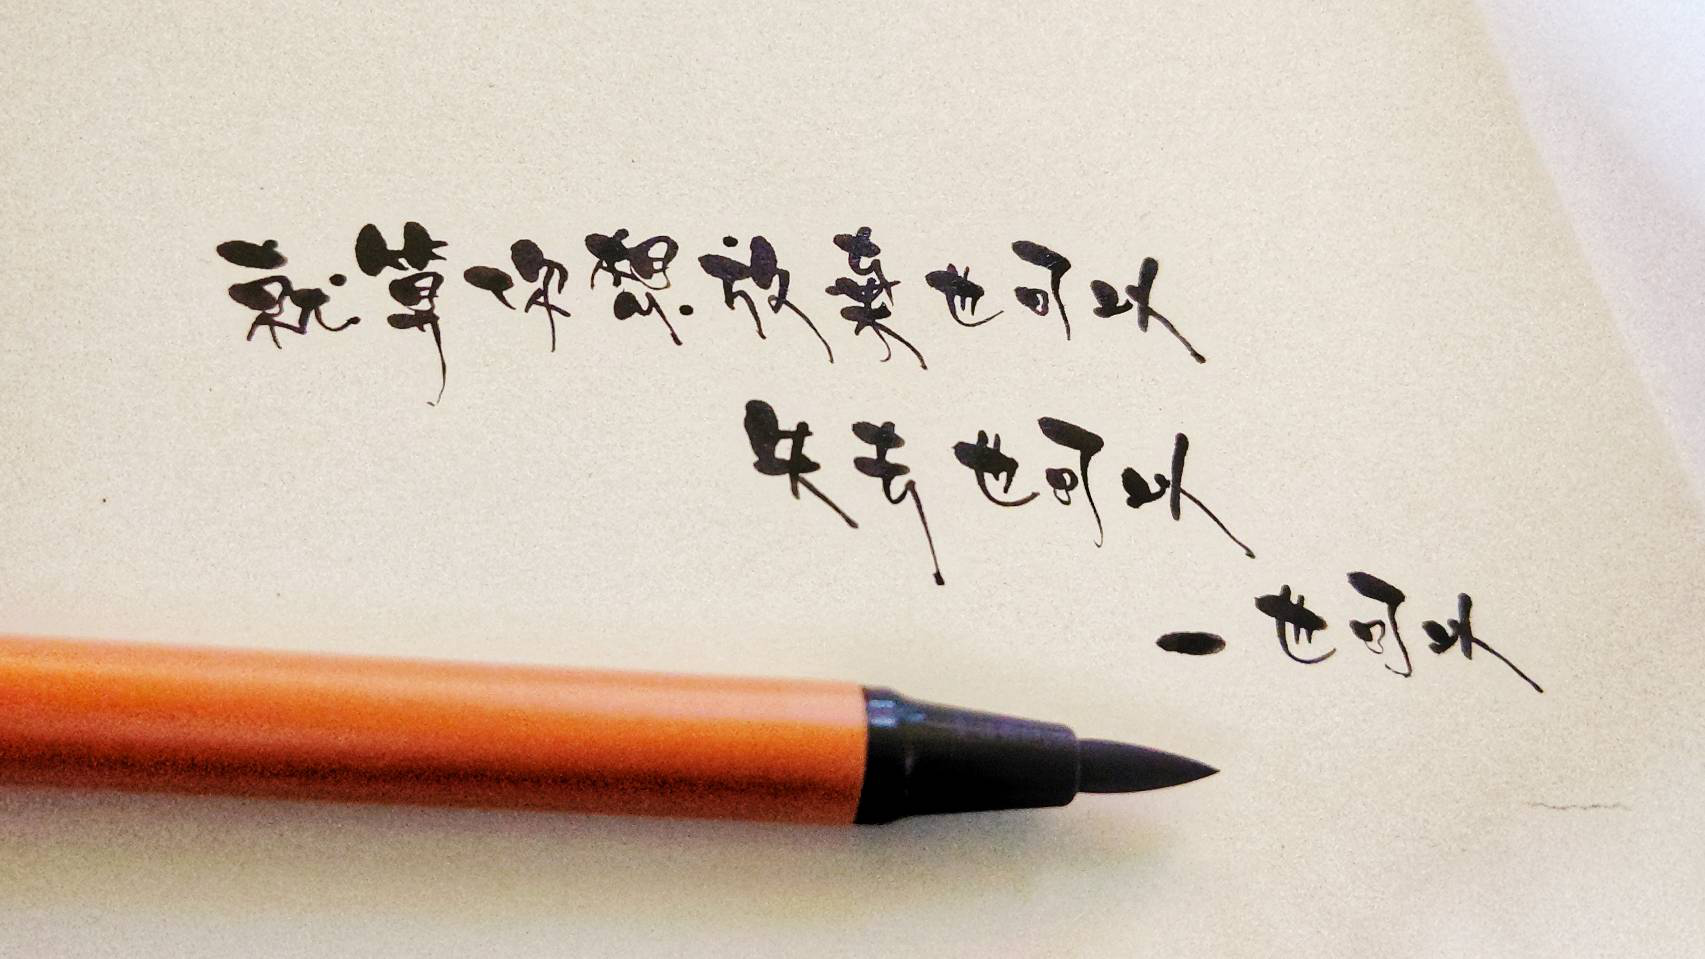 就算你想放棄也可以
失去也可以
一也可以